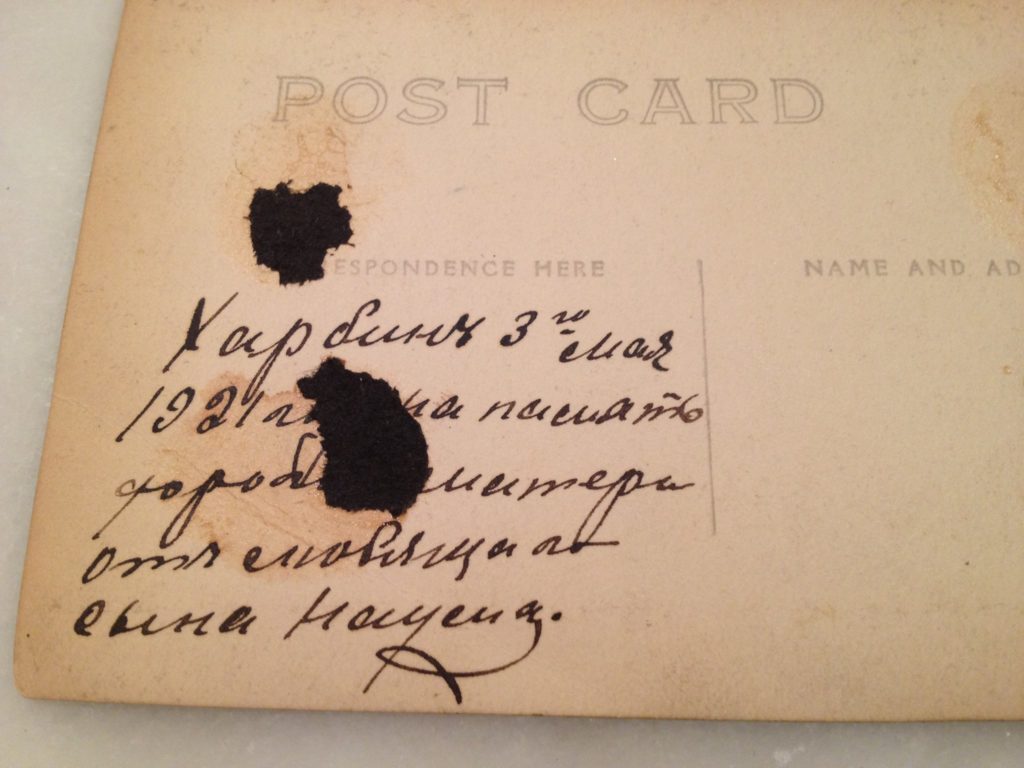 POST CARD
ESPONDENCE HERE
NAME AND AD
Харбинъ 3го мая
1921 на память
матери
отъ любящаго
сына Наума.